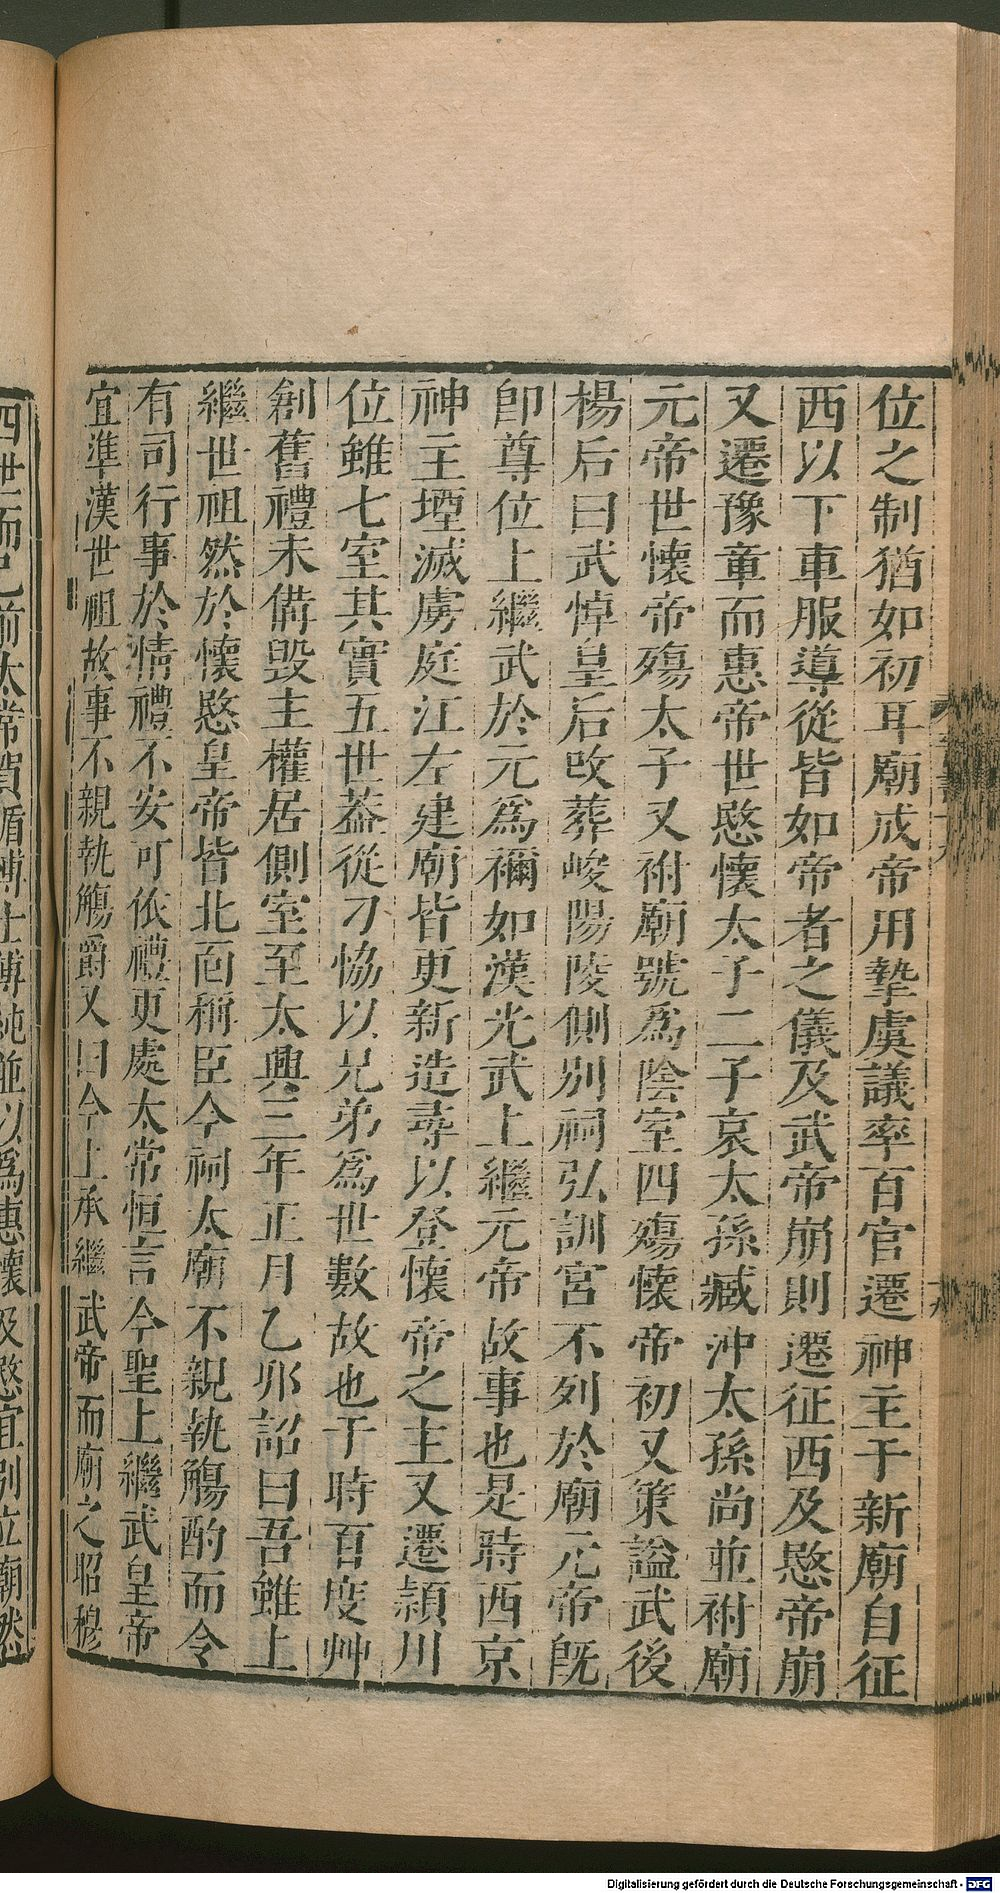 位之制猶如初耳廟成帝用摯虞議率百官遷神主于新廟自征
西以下車服導從皆如帝者之儀及武帝崩則遷征西及愍帝崩
又遷豫章而惠帝世愍懷太子二子哀太孫臧沖太孫尚並祔廟
元帝世懷帝殤太子又祔廟號爲陰室四殤懷帝初又策謚武後
楊后曰武悼皇后改葬峻陽陵側別祠弘訓宮不列於廟元帝既
卽尊位上繼武於元爲禰如漢光武上繼元帝故事也是時西京
神主堙滅虜庭江左建廟皆更新造尋以登懷帝之主又遷潁川
位雖七室其實五世葢從刁恊以兄弟爲世數故也于時百度艸
創舊禮未備毀主權居側室至太興三年正月乙卯詔曰吾雖上
繼世祖然於懷愍皇帝皆北面稱臣今祠太廟不親執觴酌而令
有司行事於情禮不安可依禮更處太常恒言今聖上繼武皇帝
宜準漢世祖故事不親執觴爵又曰今上承繼武帝而廟之昭穆
四世而已前太常賀循博士傅純並以爲惠懷及愍宜別立廟然
Digitalisierung gefördert durch die Deutsche Forschungsgemeinschaft - DFG